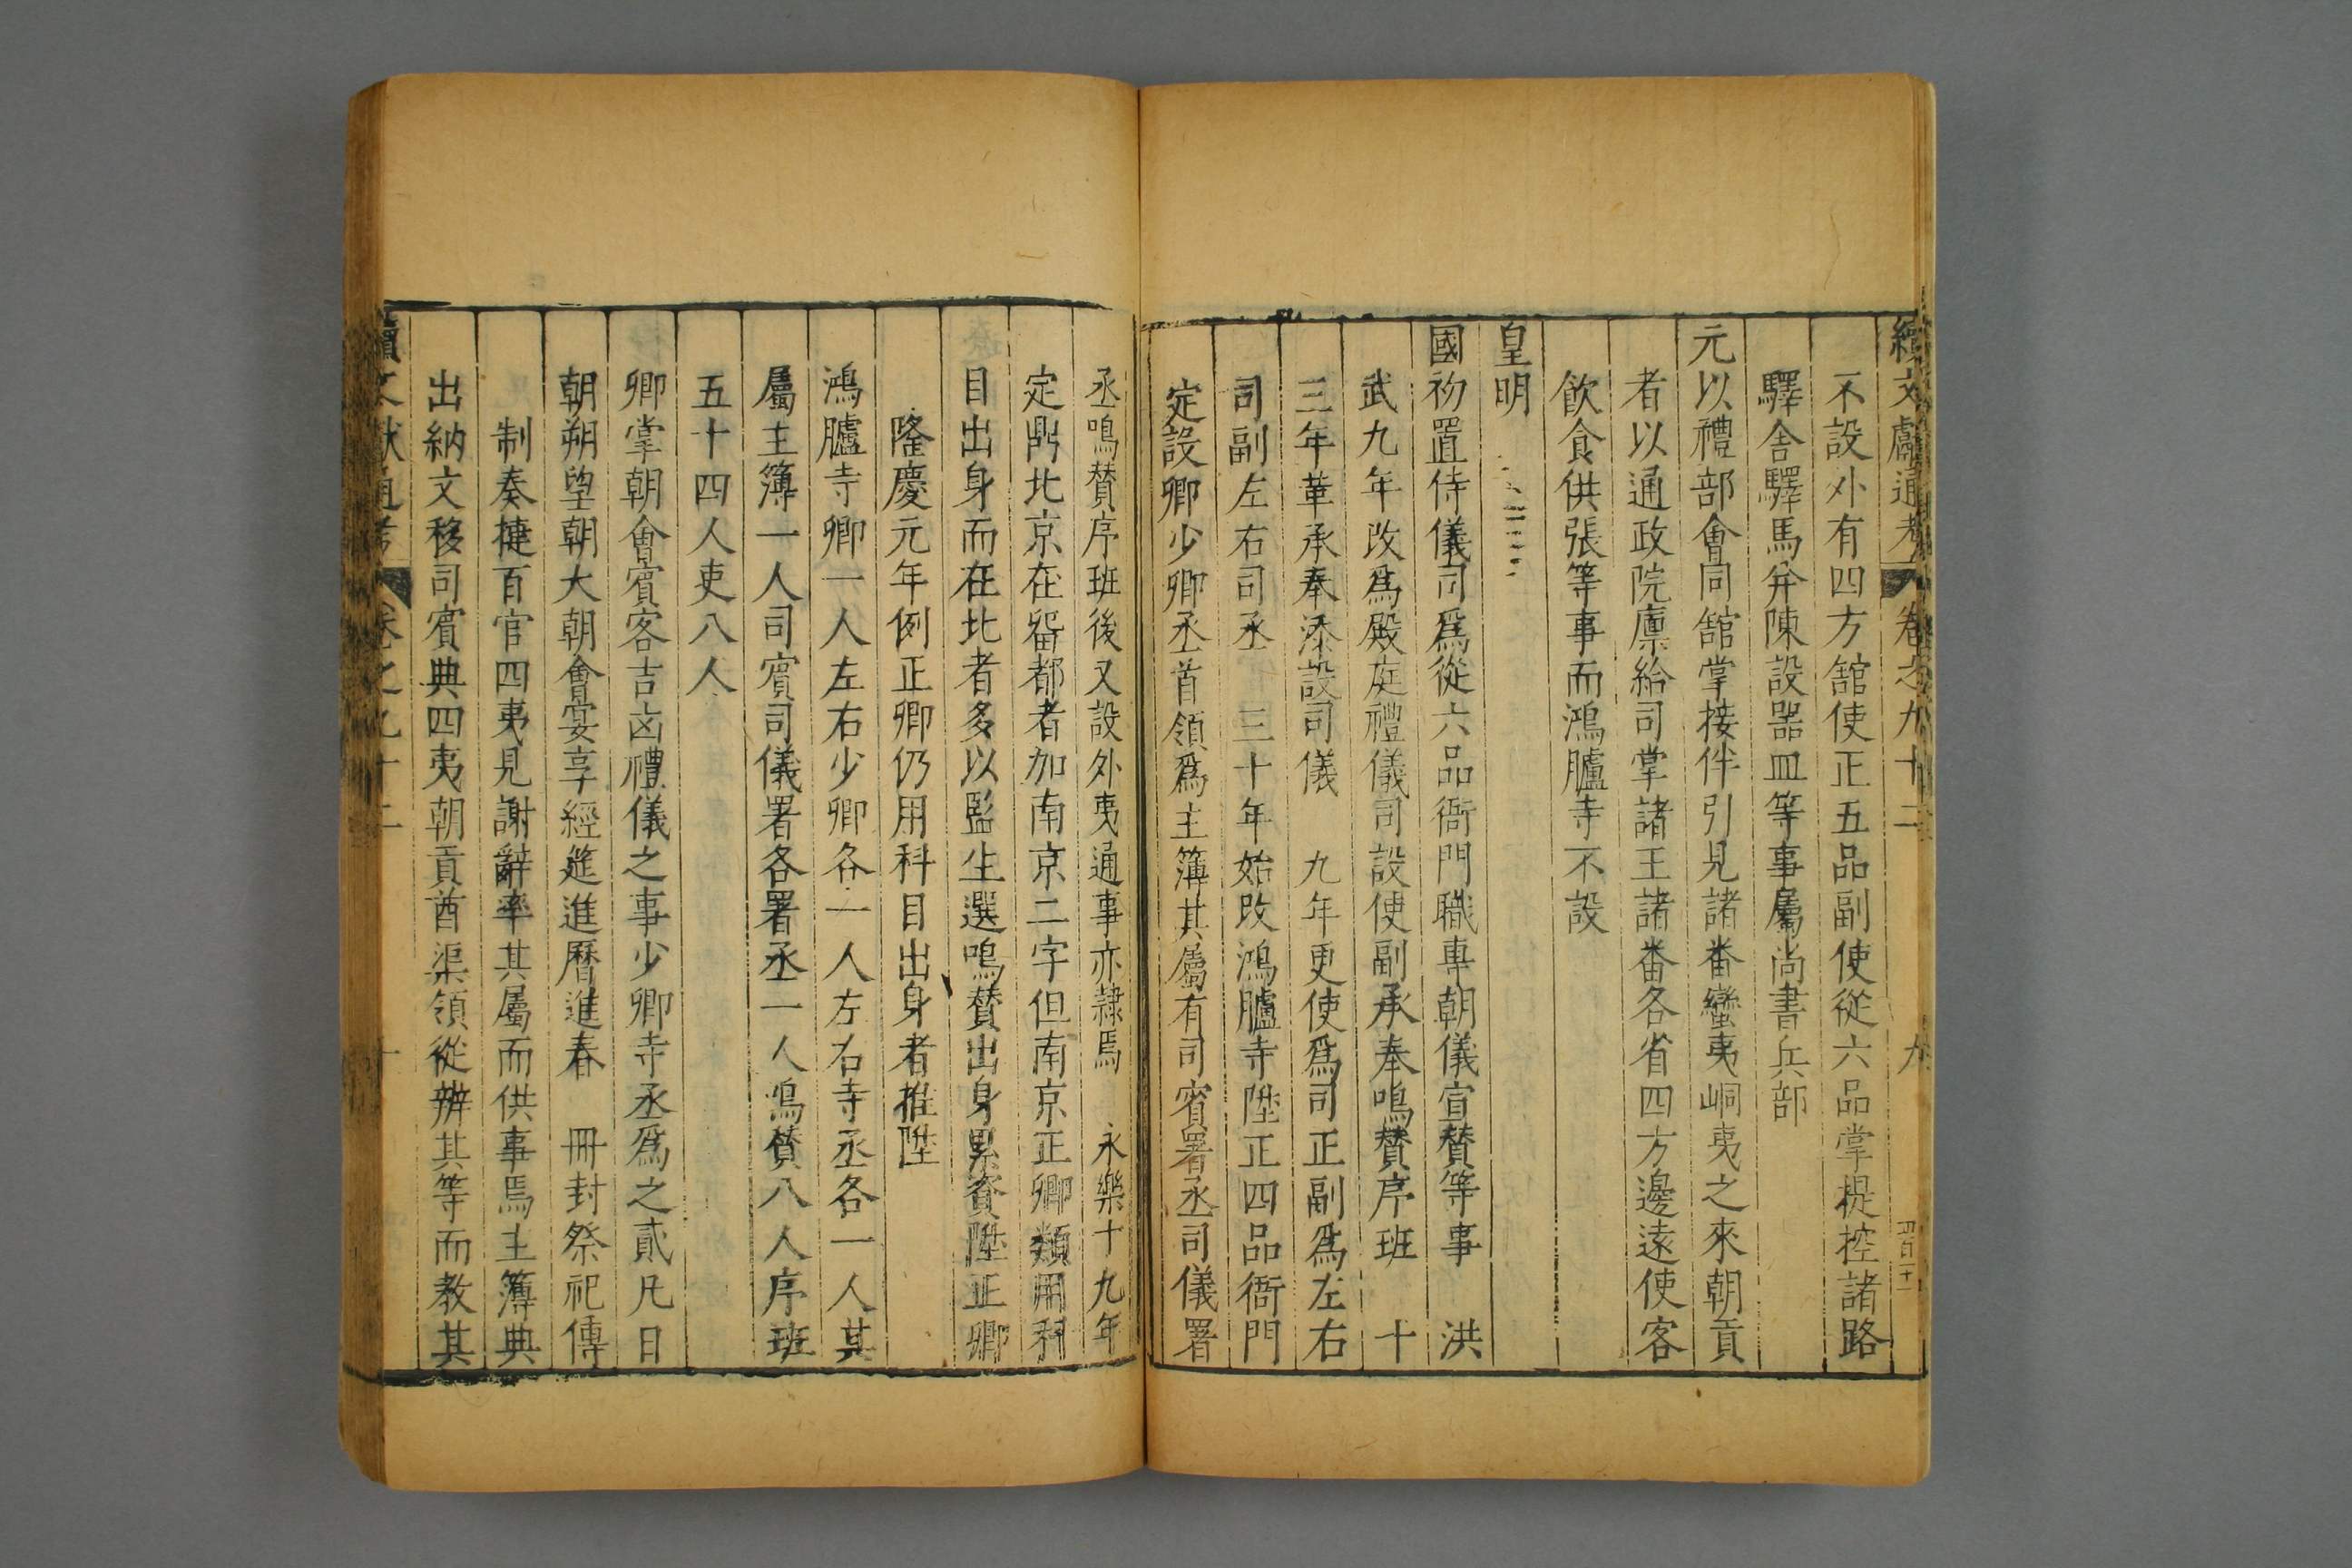 續文獻通考 卷之九十二 九
不設外有四方舘使正五品副使從六品掌提控諸路
驛舍驛馬并陳設器皿等事屬尚書兵部
元以禮部會同舘掌接伴引見諸番蠻夷峒夷之來朝貢
者以通政院廪給司掌諸王諸番各省四方邊遠使客
飲食供張等事而鴻臚寺不設
皇明
國初置侍儀司爲從六品衙門職專朝儀宣賛等事 洪
武九年改爲殿庭禮儀司設使副承奉鳴賛序班 十
三年革承奉添設司儀 九年更使爲司正副爲左右
司副左右司丞 三十年始改鴻臚寺陞正四品衙門
定設卿少卿丞首領爲主簿其屬有司賓署丞司儀署
丞鳴賛序班後又設外夷通事亦隷焉 永樂十九年
定鼎北京在留都者加南京二字但南京正卿類用科
目出身而在北者多以監生選鳴賛出身累資陞正卿
隆慶元年例正卿仍用科目出身者推陞
鴻臚寺卿一人左右少卿各一人左右寺丞各一人其
屬主簿一人司賓司儀署各署丞一人鳴賛八人序班
五十四人吏八人
卿掌朝會賓客吉凶禮儀之事少卿寺丞爲之貳凡日
朝朔望朝大朝會宴享經筵進曆進春 冊封祭祀傳
制奏捷百官四夷見謝辭率其屬而供事焉主簿典
出納文移司賓典四夷朝貢酋渠領從辨其等而教其
續文獻通考 卷之九十二